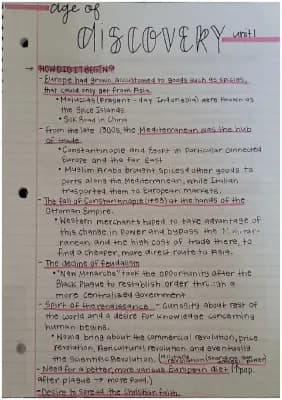 age of
DISCOVERY unit 1
→ HOW DID IT BEGIN?
- Europe had grown accustomed to goods such as spices,
that could only get from Asia.
• Moluccas (present-day Indonesia) were known as
the Spice Islands.
• Silk Road in China
- From the late 1300s, the Mediterranean was the hub
of trade.
• Constantinople and Egypt in particular connected
Europe and the Far East
• Muslim Arabs brought spices & other goods to
ports along the Mediterranean, while Italian
transported them to European markets.
- The fall of Constantinople (1453) at the hands of the
Ottoman Empire.
• Western merchants hoped to take advantage of
this change in power and bypass the
ranean, and the high cost of trade there, to
find a cheaper, more direct route to Asia.
- The decline of feudalism
• "New Monarchs" took the opportunity after the
Black Plague to restablish order through a
more centralized government
- Spirit of the renaissance - curiosity about rest of
the world and a desire for knowledge concerning
human beings.
• Would bring about the commercial revolution, price
revolution, Agricultural revolution, and eventually
the Scientific Revolution. (Military revolution)
- Need for a better, more various European diet (↑ pop.
after plague → more food.)
- Desire to spread the Christian faith.